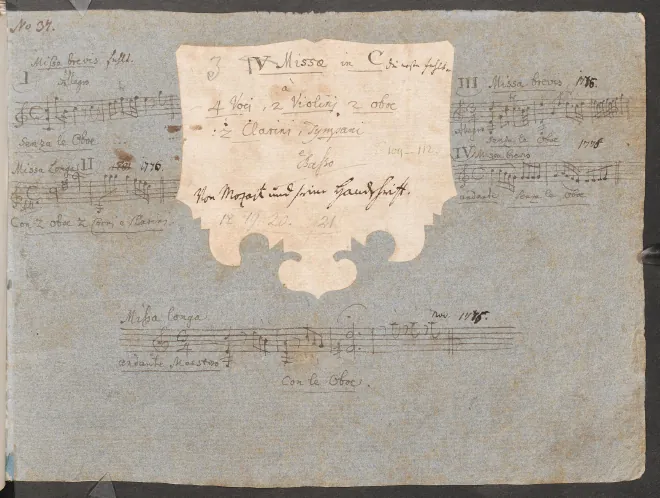 No 37.
Missa brevis fehlt.
I
Allegro
Senza le Oboe
Missa Longa II 1776
Con 2 oboe 2 Corni e Clarini
3 IV Missæ in C die erste fehlt.
à
4 Voci, 2 Violini, 2 oboe
2 Clarini, Tympani
e Basso
Von Mozart und seine Handschrift.
III Missa brevis 1776.
Allegro
Senza le Oboe
IV Missa brevis 1775
andante Senza le oboe
Missa Longa. Nov. 1776.
andante Maestoso
Con le Oboe.